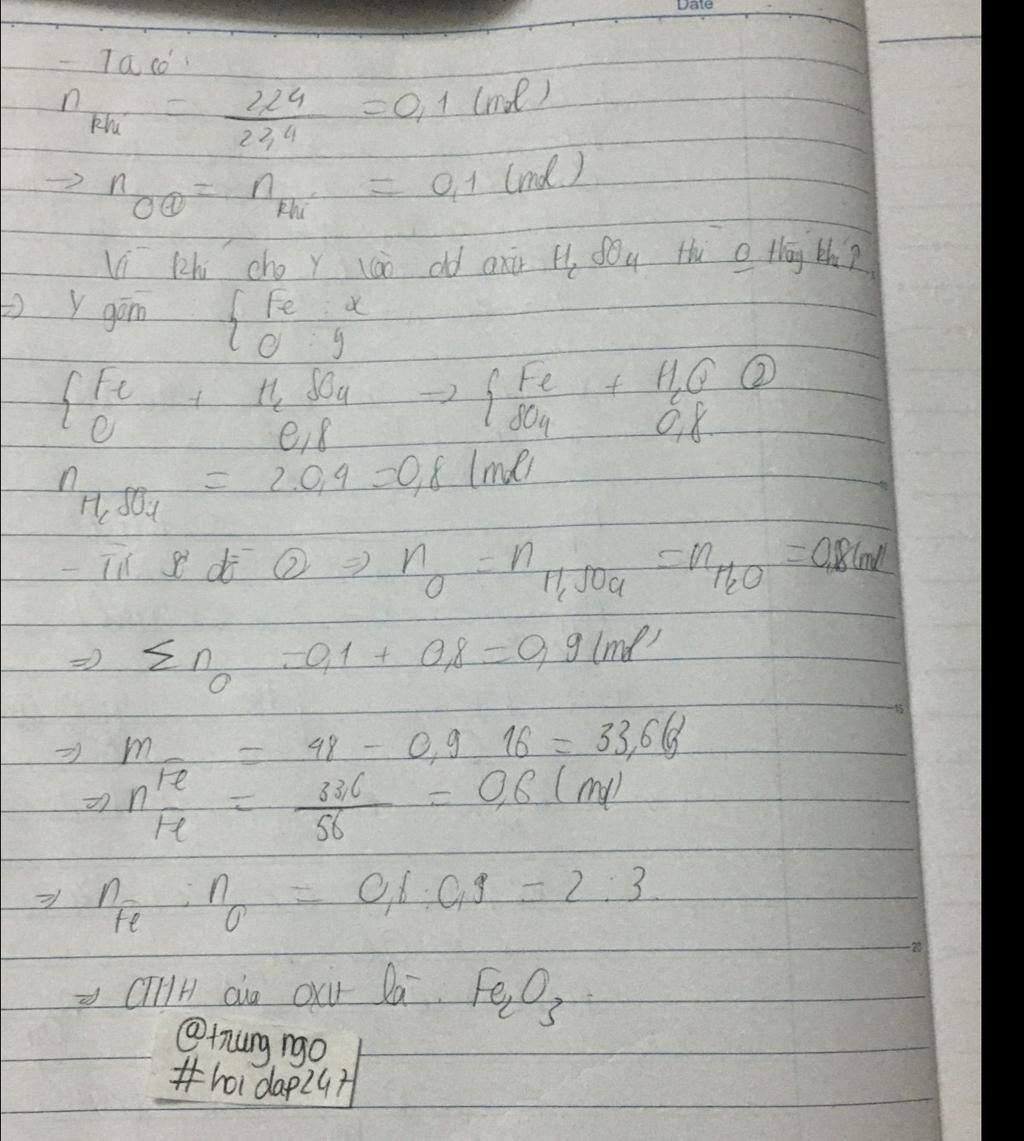 Date
- Ta có:
n khí = 2,24 / 22,4 = 0,1 (mol)
=> n O ① = n khí = 0,1 (mol)
Vì khi cho Y vào dd axit H2SO4 thì 0 thấy khí ?
=> Y gồm { Fe : x
O : y
{ Fe O + H2SO4 → { Fe SO4 + H2O ②
0,8 0,8
n H2SO4 = 2.0,4 = 0,8 (mol)
- Từ sơ đồ ② => n O = n H2SO4 = n H2O = 0,8 (mol)
=> Σ n O = 0,1 + 0,8 = 0,9 (mol)
=> m Fe = 48 - 0,9 16 = 33,6 g
=> n Fe = 33,6 / 56 = 0,6 (mol)
=> n Fe : n O = 0,6 : 0,9 = 2 : 3.
=> CTHH của oxit là : Fe2O3.
@trung ngo
#hoi dap247
15
20